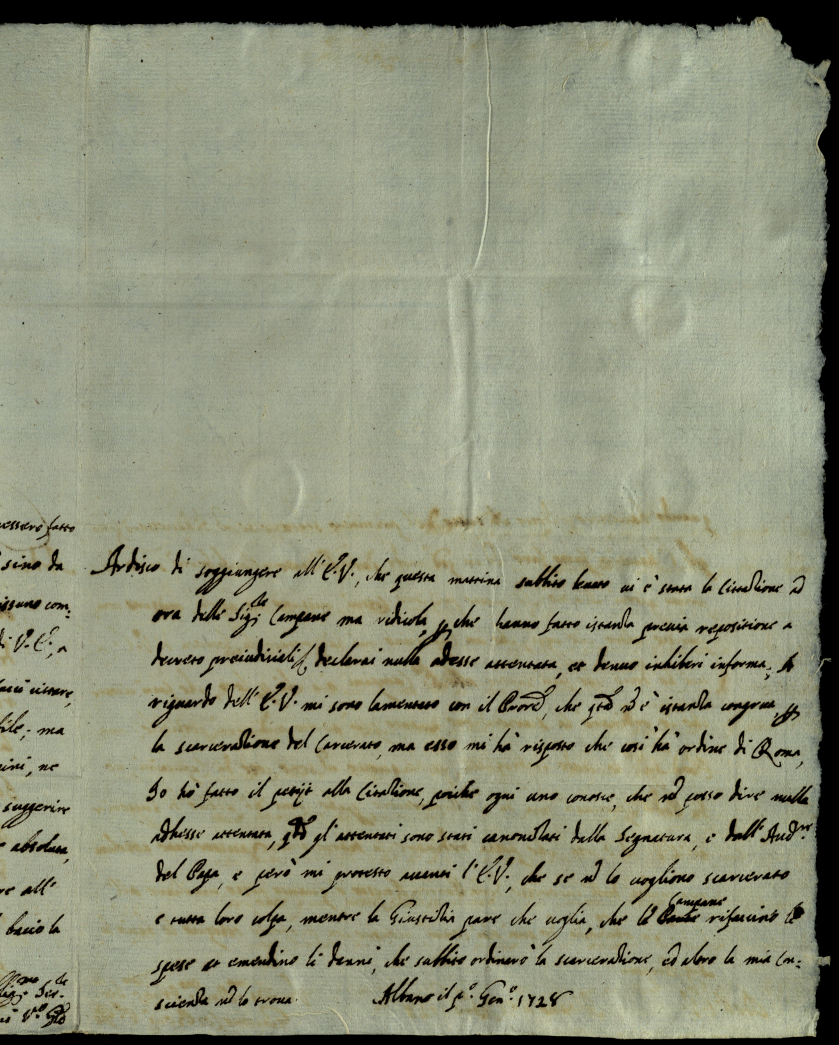 essero fatto
sino da
issuno com:
di V. E., a
citare,
ile; ma
ini, ne
suggerire
e absoluta,
re all'
bacio la
Ardisco di soggiungere all'E. V., che questa mattina subbito levato vi è stata la Citazione ad
ora delle Sig.re Campane ma ridicola, p che hanno fatto istanza previa repositione a
decreto preiudiziali declarai nulla adesse attentata, et denuo inhiberi informa; A
riguardo dell'E. V. mi sono lamentato con il, che è istanza congrua p
la scarcerazione del Carcerato, ma esso mi hà risposto che così hà ordine di Roma,
Io hò fatto il petijt alla Citazione, poiche ogni uno conosce, che nõ posso dire nulla
adhesse attentata, gl'attentati sono stati cancellati dalla Segnatura, e dall'Aud.re
del Papa, e però mi protesto avanti l'E. V., che se nõ lo vogliono scarcerato
Campane
e tutta loro colpa, mentre la Giustizia pare che voglia, che le rifaccino le
spese et emendino li danni, che subbito ordinerò la scarcerazione, ed altro la mia Con:
scienza nõ lo trova. Albano il p.o Gen.o 1728